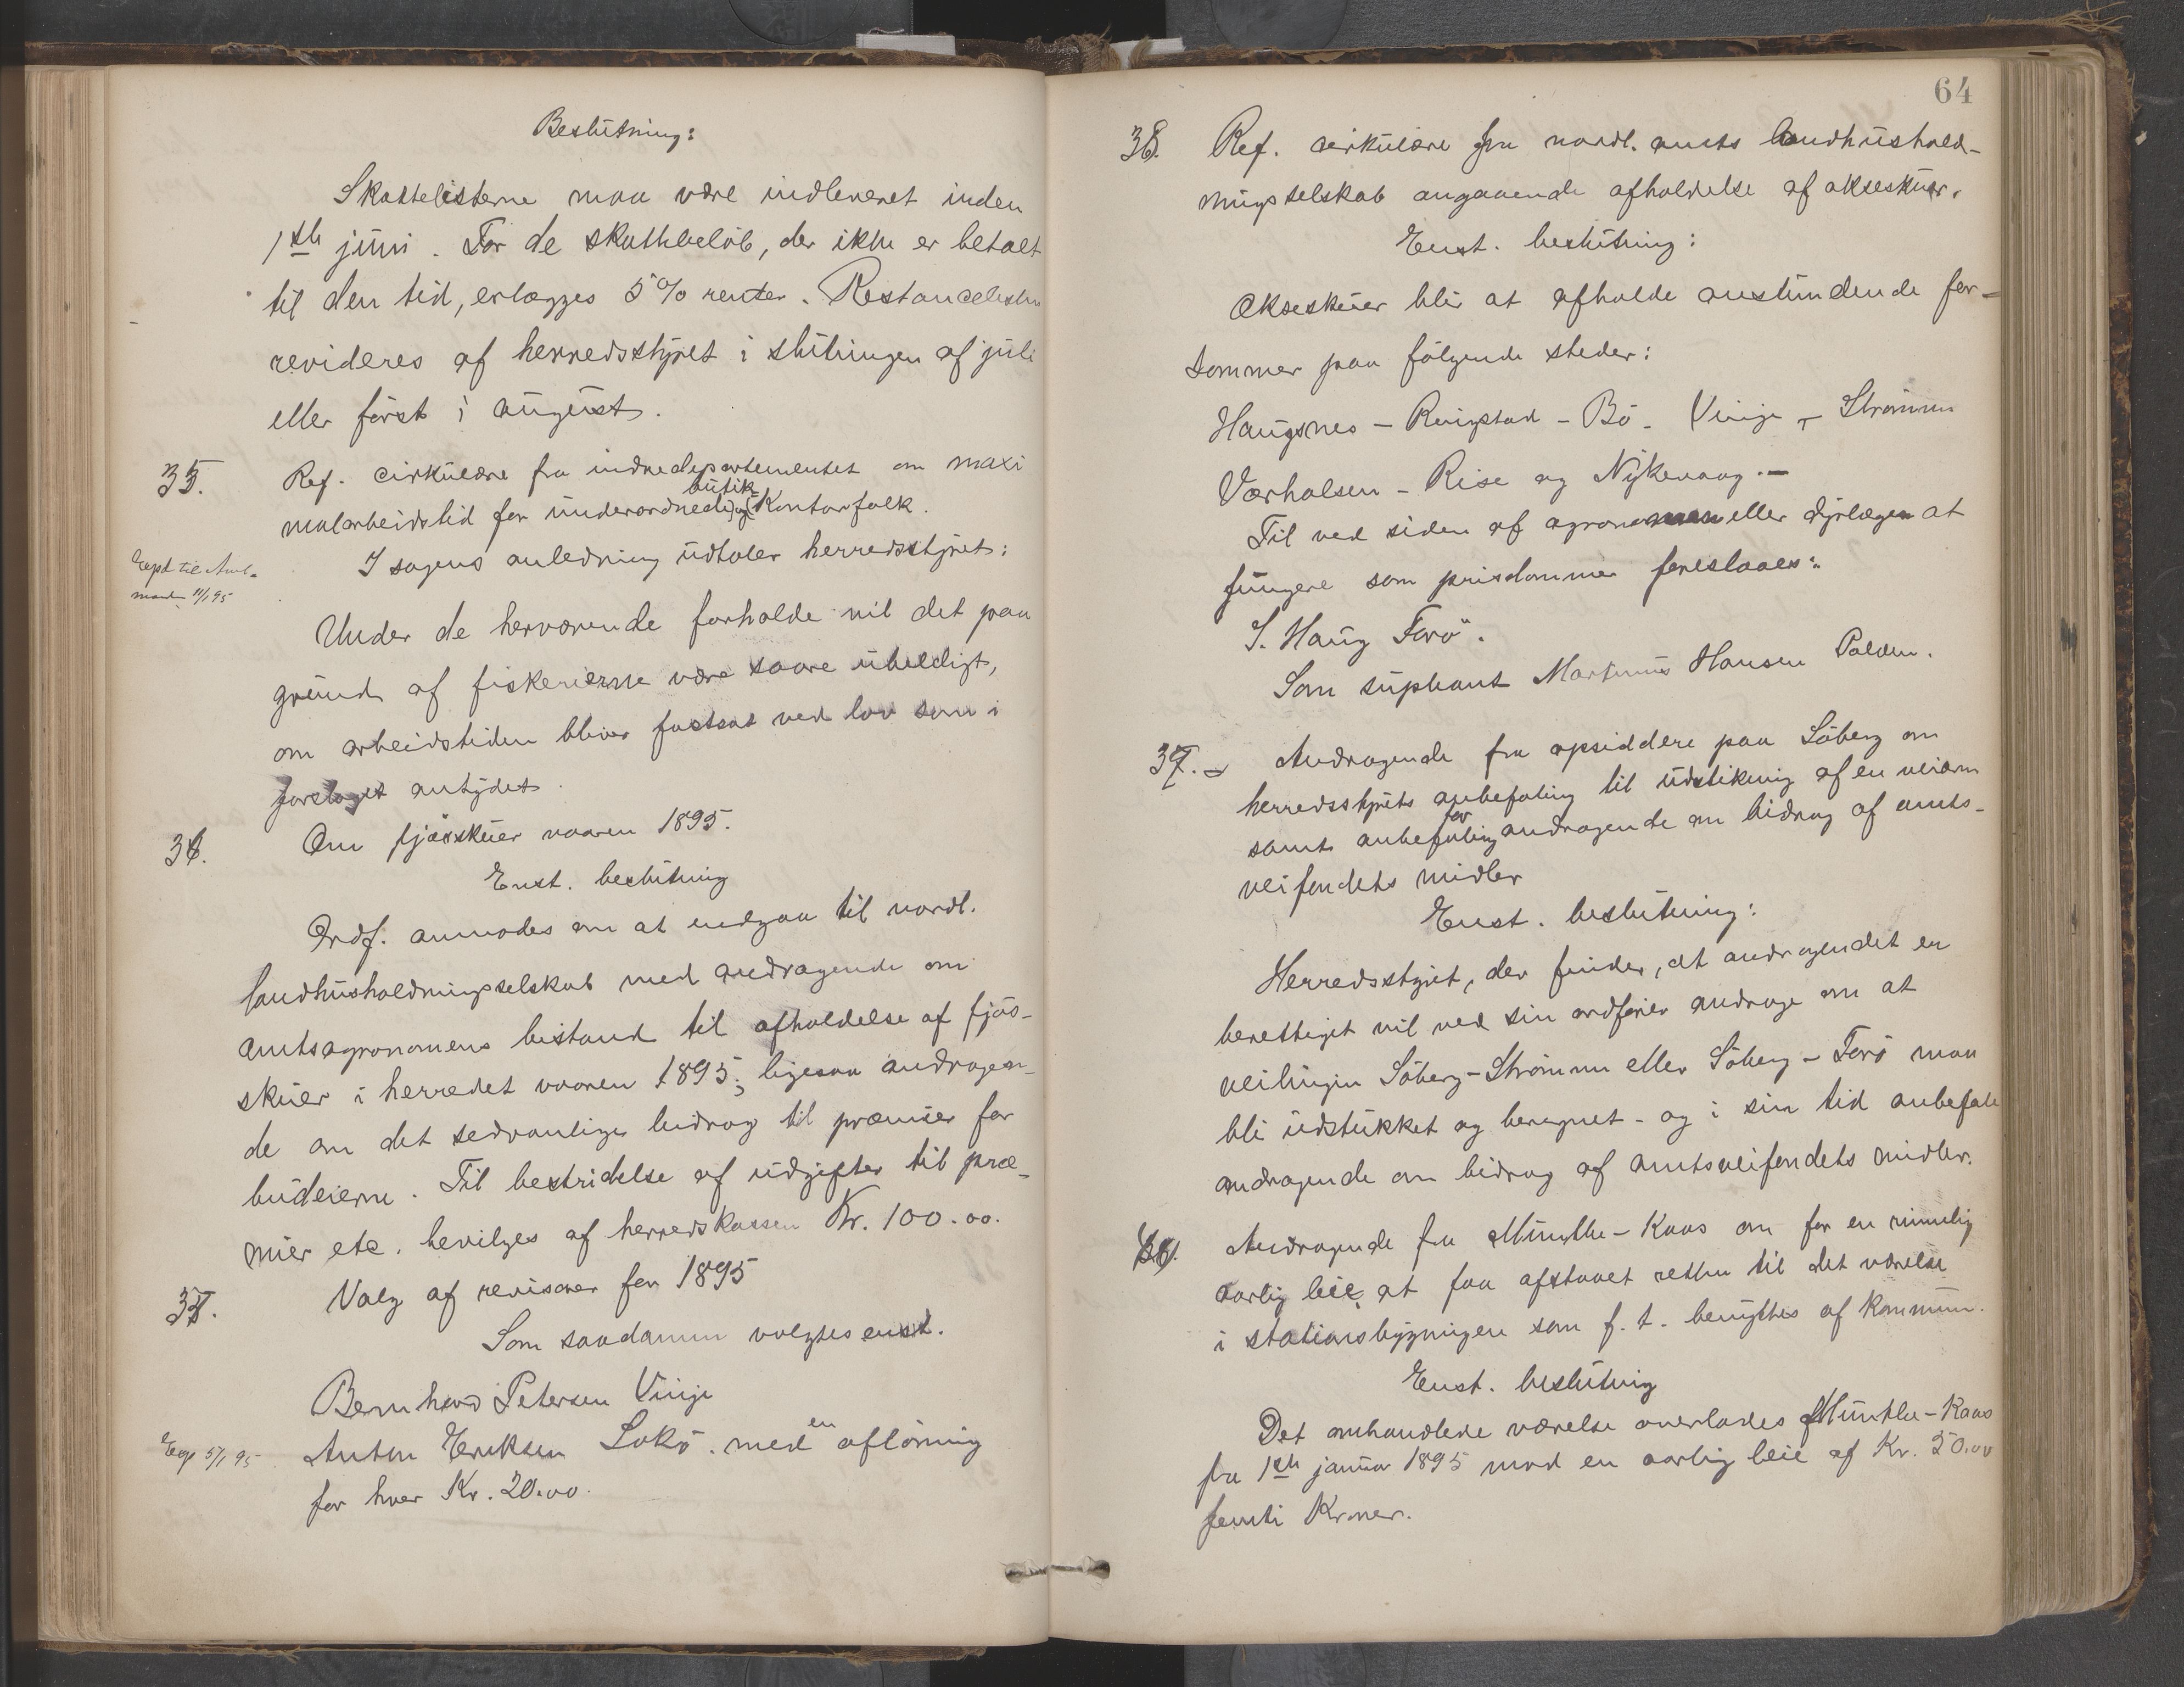 Beslutning:
Skattelisterne maa være indleveret inden
1ste juni. For de skattebeløb, der ikke er betalt
til den tid, erlægges 5% renter. Restancelisten
revideres af herredsstyret i slutningen af juli
eller først i august.
35. Ref. cirkulære fra indredepartementet om maxi
malarbeidstid for underordnede butik- og Kontorfolk.
I sagens anledning udtaler herredsstyret:
Expd til Amt-
mand 11/1 95
Under de herværende forholde vil det paa
grund af fiskerierne være saare uheldigt,
om arbeidstiden bliver fastsat ved lov som i
forslaget antydet.
36. Om fjøsskuer vaaren 1895.
Enst. beslutning
Ordf. anmodes om at indgaa til nordl.
landhusholdningsselskab med andragende om
amtsagronomens bistand til afholdelse af fjøs-
skuer i herredet vaaren 1895; ligesaa andragen-
de om det sedvanlige bidrag til præmier for
budeierne. Til bestridelse af udgifter til præ-
mier etc. bevilges af herredskassen Kr. 100.00.
37. Valg af revisorer for 1895
Som saadanne valgtes enst.
Bernhard Petersen Vinje
Exp 5/1 95 Anton Eriksen Lokø. med en aflønning
for hver Kr. 20.00.
64
38. Ref. cirkulære fra nordl. amts landhushold-
ningsselskab angaaende afholdelse af okseskuer.
Enst. beslutning:
Okseskuer blir at afholde anstundende for-
sommer paa følgende steder:
Haugsnes - Ringstad - Bø - Vinje - Strømme
Værhalsen - Rise og Nykevaag. -
Til ved siden af agronomen eller dyrlægen at
fungere som prisdommer foreslaaes:
I. Haug Forø.
Som supleant Martinus Hansen Polden.
39. Andragende fra opsiddere paa Søberg om
herredsstyrets anbefaling til udstikning af en veiarm
samt anbefaling for andragende om bidrag af amts-
veifondets midler
Enst. beslutning:
Herredsstyret, der finder, at andragendet er
berettiget vil ved sin ordfører andrage om at
veilinjen Søberg - Strømme eller Søberg - Forø maa
bli udstukket og beregnet - og i sin tid anbefale
andragende om bidrag af amtsveifondets midler.
Andragende fra Munthe-Kaas om for en rimelig
aarlig leie at faa afstaaet retten til det værelse
i stationsbygningen som f. t. benyttes af Kommunen.
Enst. beslutning
Det omhandlede værelse overlades Munthe-Kaas
fra 1ste januar 1895 mod en aarlig leie af Kr. 50.00
femti Kroner.